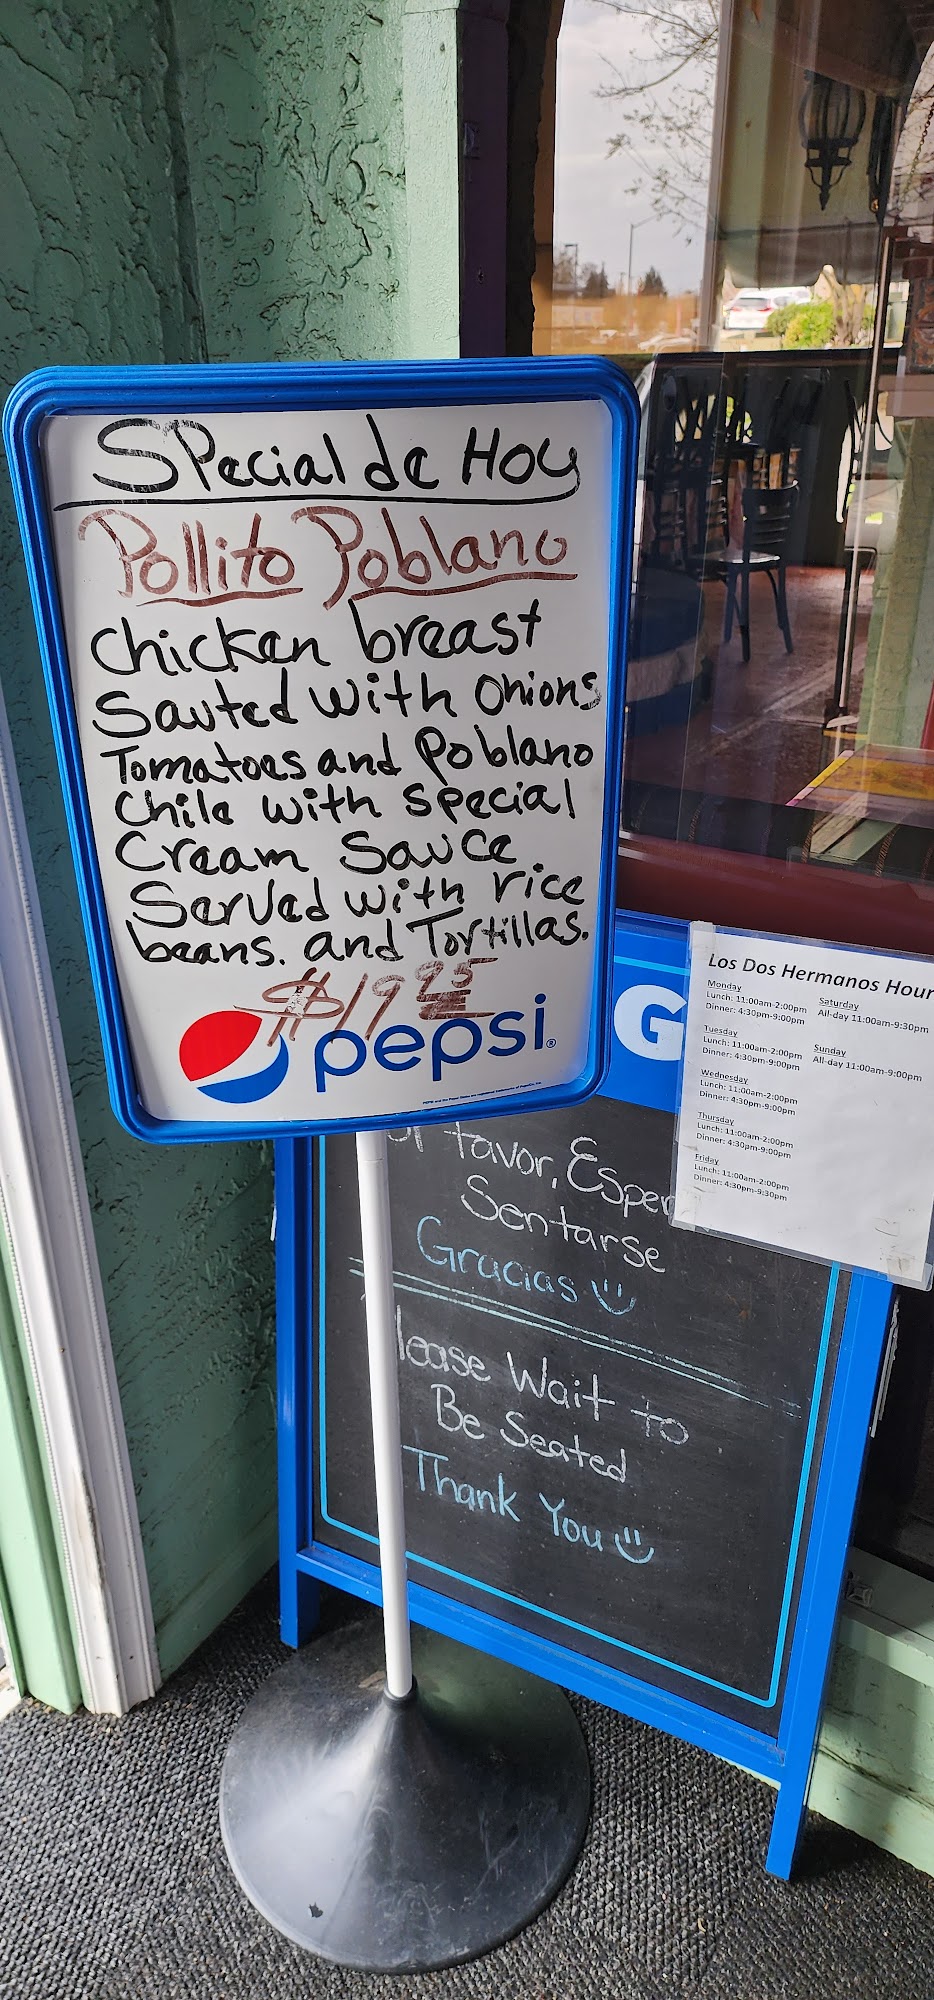 Special de Hoy
Pollito Poblano
Chicken breast
Sauted with onions
Tomatoes and Poblano
Chile with special
Cream Sauce
Served with rice
beans. and Tortillas.
$19 95
pepsi®
G
Los Dos Hermanos Hour
Monday
Lunch: 11:00am-2:00pm
Dinner: 4:30pm-9:00pm
Tuesday
Lunch: 11:00am-2:00pm
Dinner: 4:30pm-9:00pm
Wednesday
Lunch: 11:00am-2:00pm
Dinner: 4:30pm-9:00pm
Thursday
Lunch: 11:00am-2:00pm
Dinner: 4:30pm-9:00pm
Friday
Lunch: 11:00am-2:00pm
Dinner: 4:30pm-9:30pm
Saturday
All-day 11:00am-9:30pm
Sunday
All-day 11:00am-9:00pm
or favor, Esper
Sentarse
Gracias
lease Wait to
Be Seated
Thank You